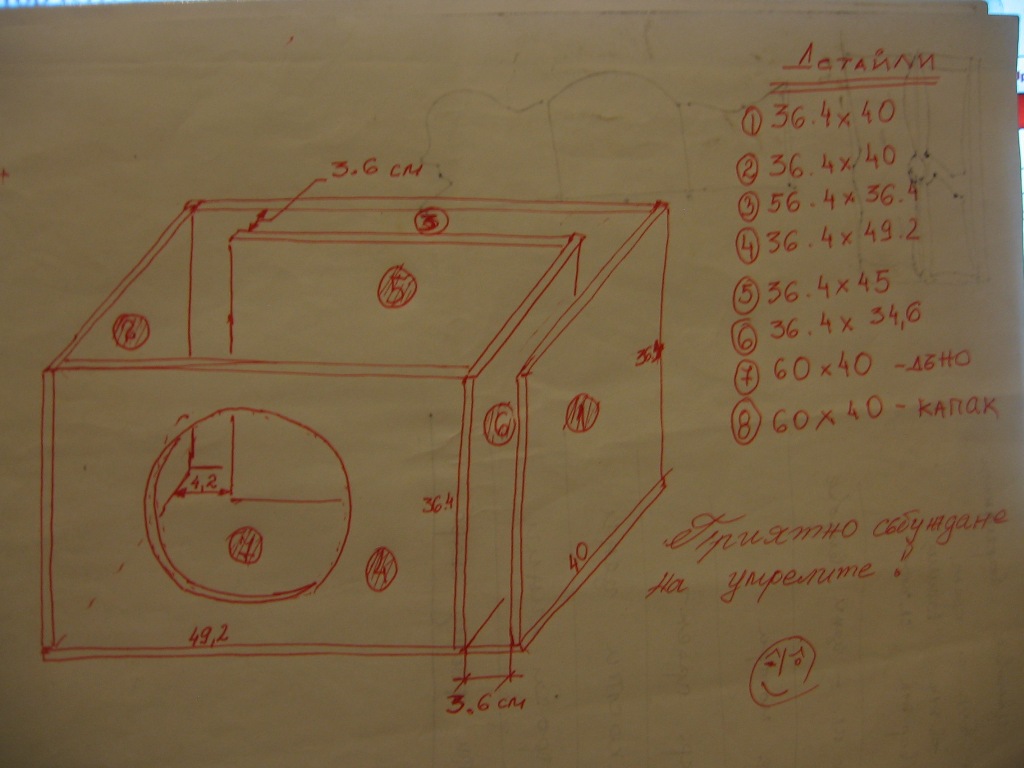 Детайли
① 36.4 x 40
② 36.4 x 40
③ 56.4 x 36.4
④ 36.4 x 49.2
⑤ 36.4 x 45
⑥ 36.4 x 34,6
⑦ 60 x 40 - дъно
⑧ 60 x 40 - капак
3.6 см
3
5
2
6
1
36.4
4,2
7
4
36.4
40
49,2
3.6 см
Приятно събуждане
на умрелите!